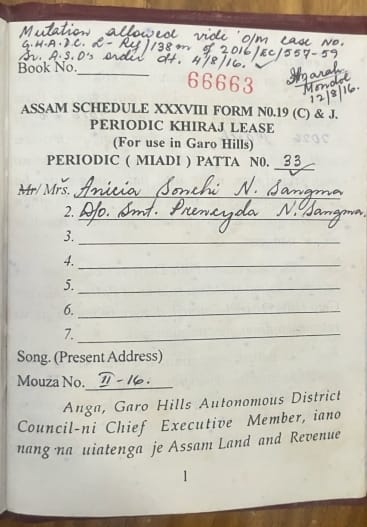 Mutation allowed vide O/M case No.
G.H.A.D.C. 2-Rij/138m of 2016/EC/557-59
Sr. A.S.O's order dt. 4/8/16.
Book No.
66663
Mondal
12/8/16.
ASSAM SCHEDULE XXXVIII FORM N0.19 (C) & J.
PERIODIC KHIRAJ LEASE
(For use in Garo Hills)
PERIODIC ( MIADI ) PATTA N0. 33
Mr/ Mrs. Anicia Sonchi N. Sangma
2. D/o. Smt. Prencyda N. Sangma.
3.
4.
5.
6.
7.
Song. (Present Address)
Mouza No. II-16.
Anga, Garo Hills Autonomous District
Council-ni Chief Executive Member, iano
nang·na uiatenga je Assam Land and Revenue
1